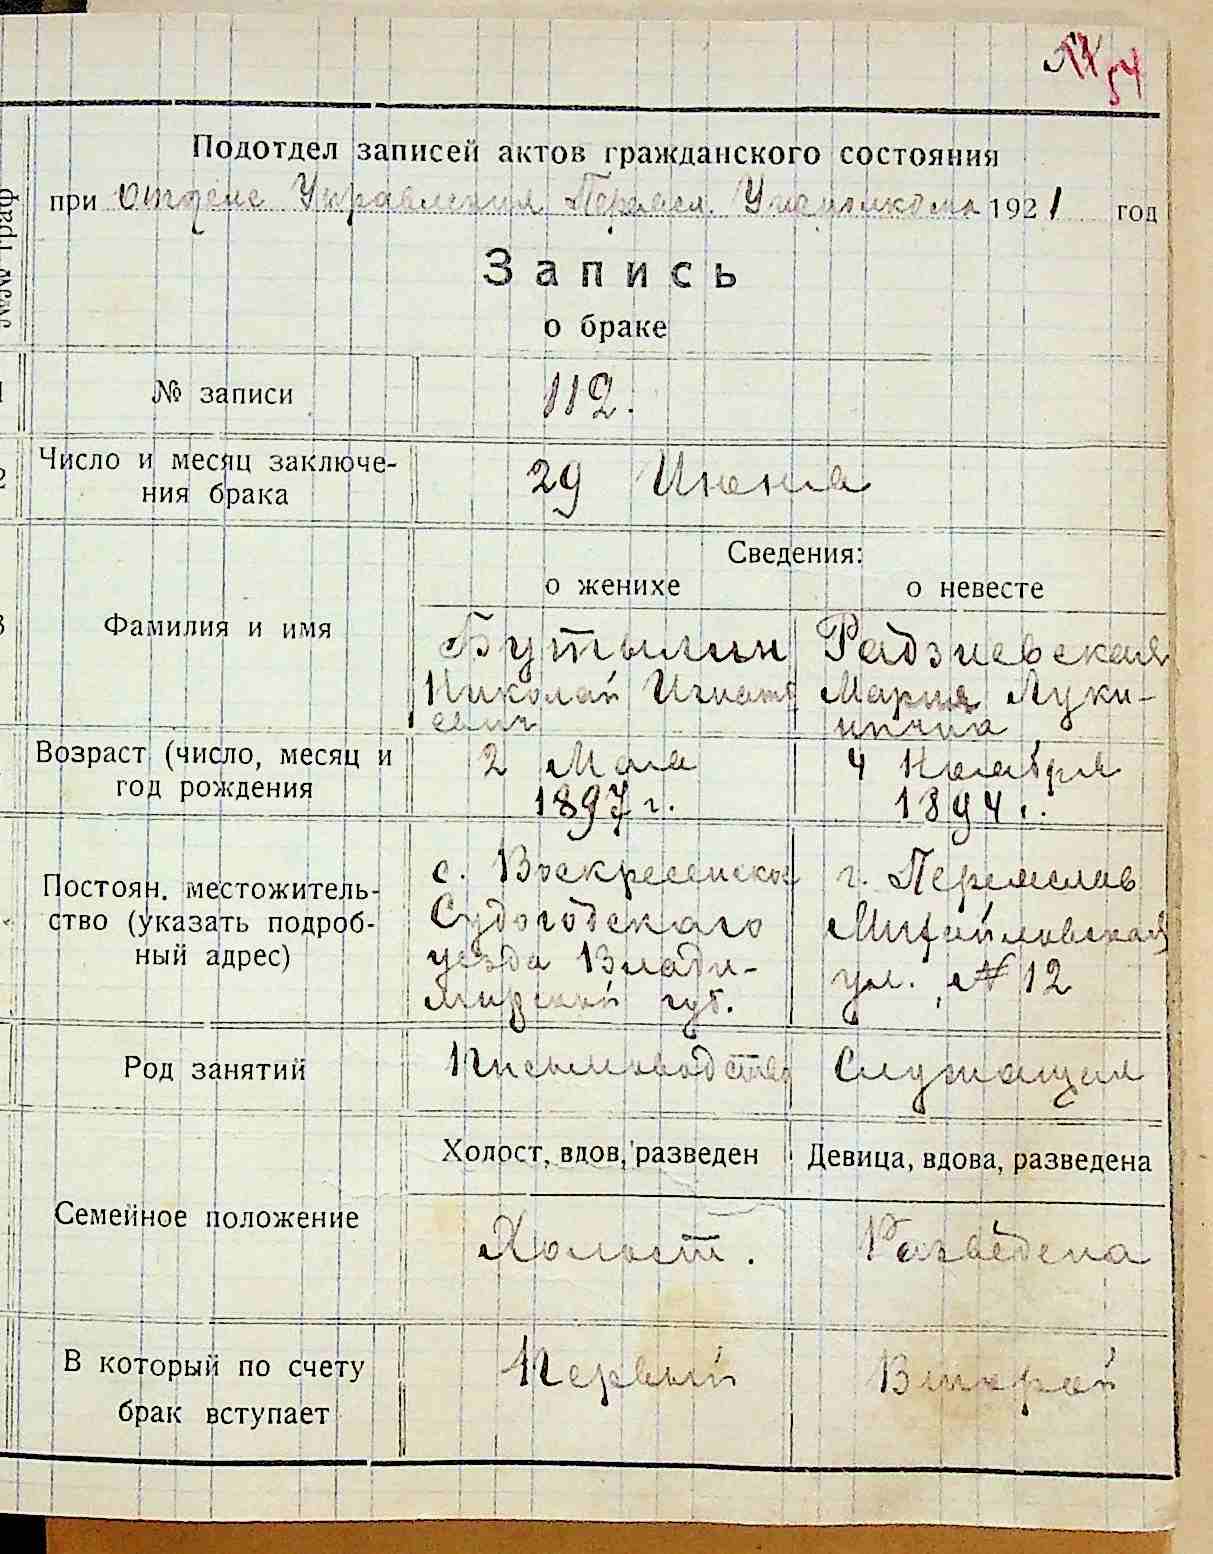 54
№№ граф
Подотдел записей актов гражданского состояния
при Отделе Управления Переясл. Уисполкома 1921 год
Запись
о браке
№ записи 112.
Число и месяц заключе-
ния брака
29 Июня
Сведения:
о женихе о невесте
Фамилия и имя
Бутылин
Николай Игнать
евич
Радзиевская
Мария Луки-
нична
Возраст (число, месяц и
год рождения
2 Мая
1897 г.
4 Ноября
1894 г.
Постоян. местожитель-
ство (указать подроб-
ный адрес)
с. Воскресенско
Судогодского
уезда Влади-
мирской губ.
г. Переяслав
Михайловская
ул. № 12
Род занятий
Письмоводство
Служащая
Семейное положение
Холост, вдов, разведен
Девица, вдова, разведена
Холост.
Разведена
В который по счету
брак вступает
Первый
Второй